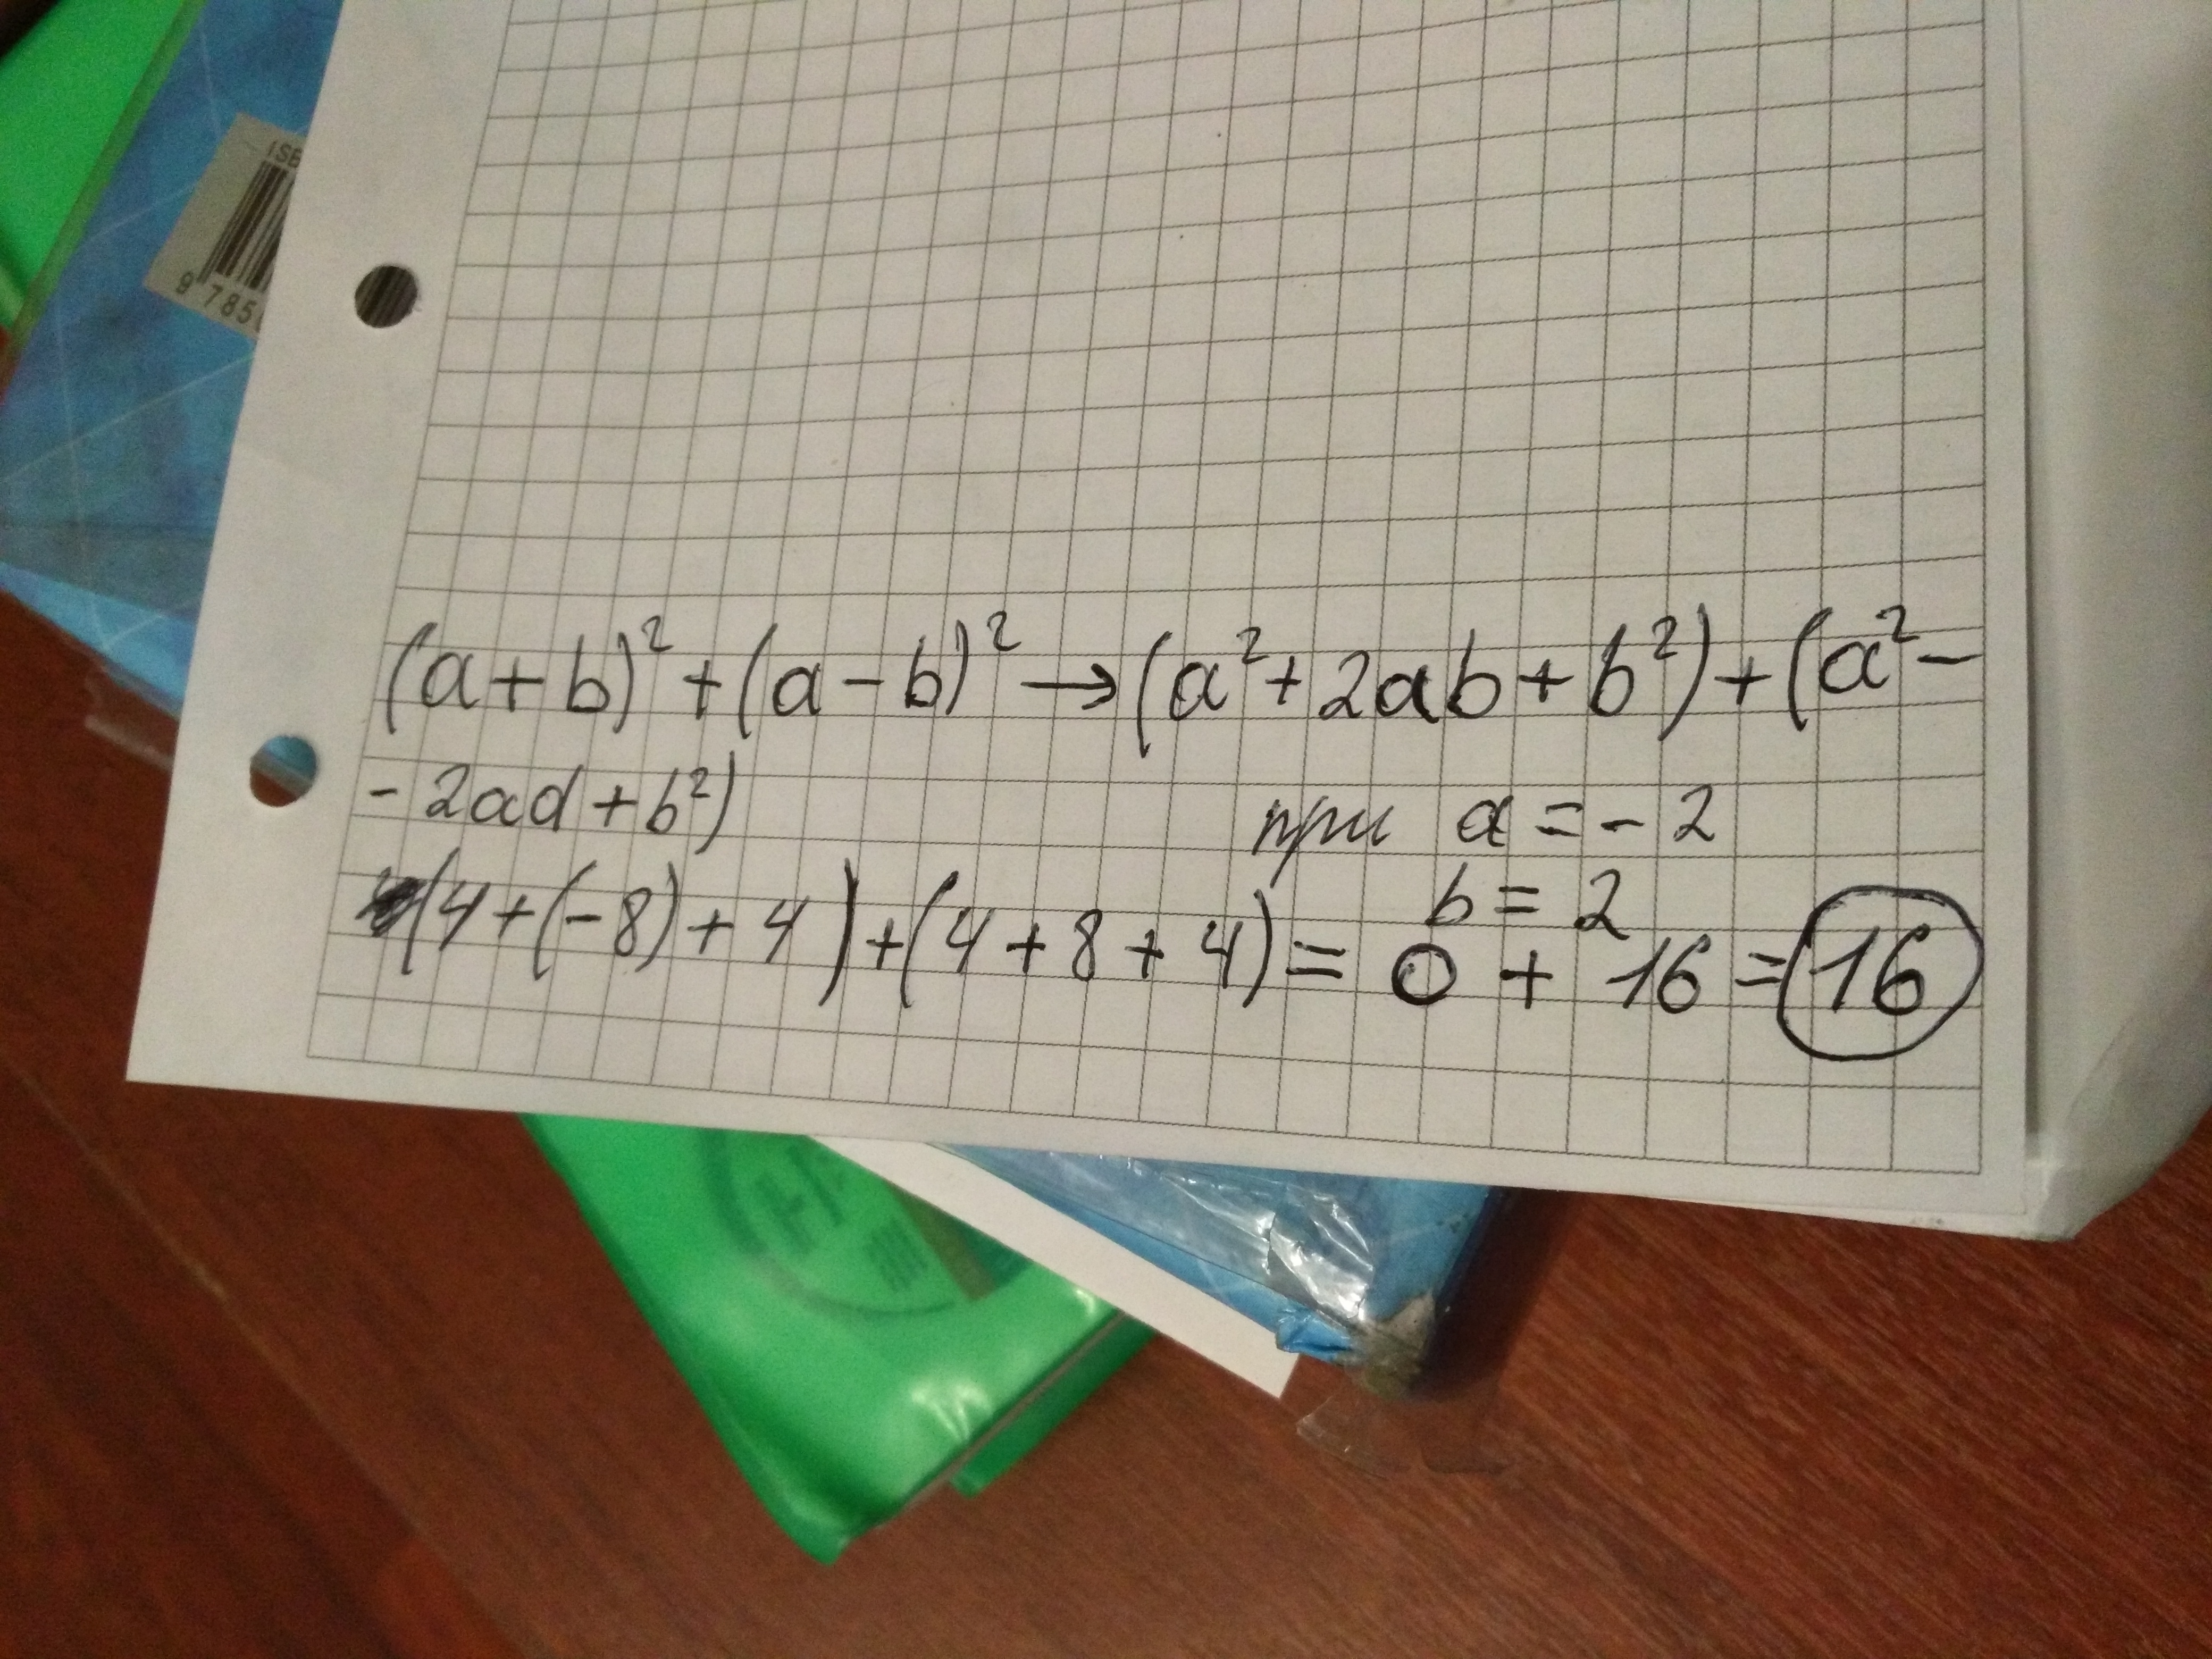 ISB
9 785
(a+b)²+(a-b)² → (a²+2ab+b²)+(a²-
-2ad+b²)
при a=-2
b=2
(4+(-8)+4)+(4+8+4)= 0 + 16 = 16